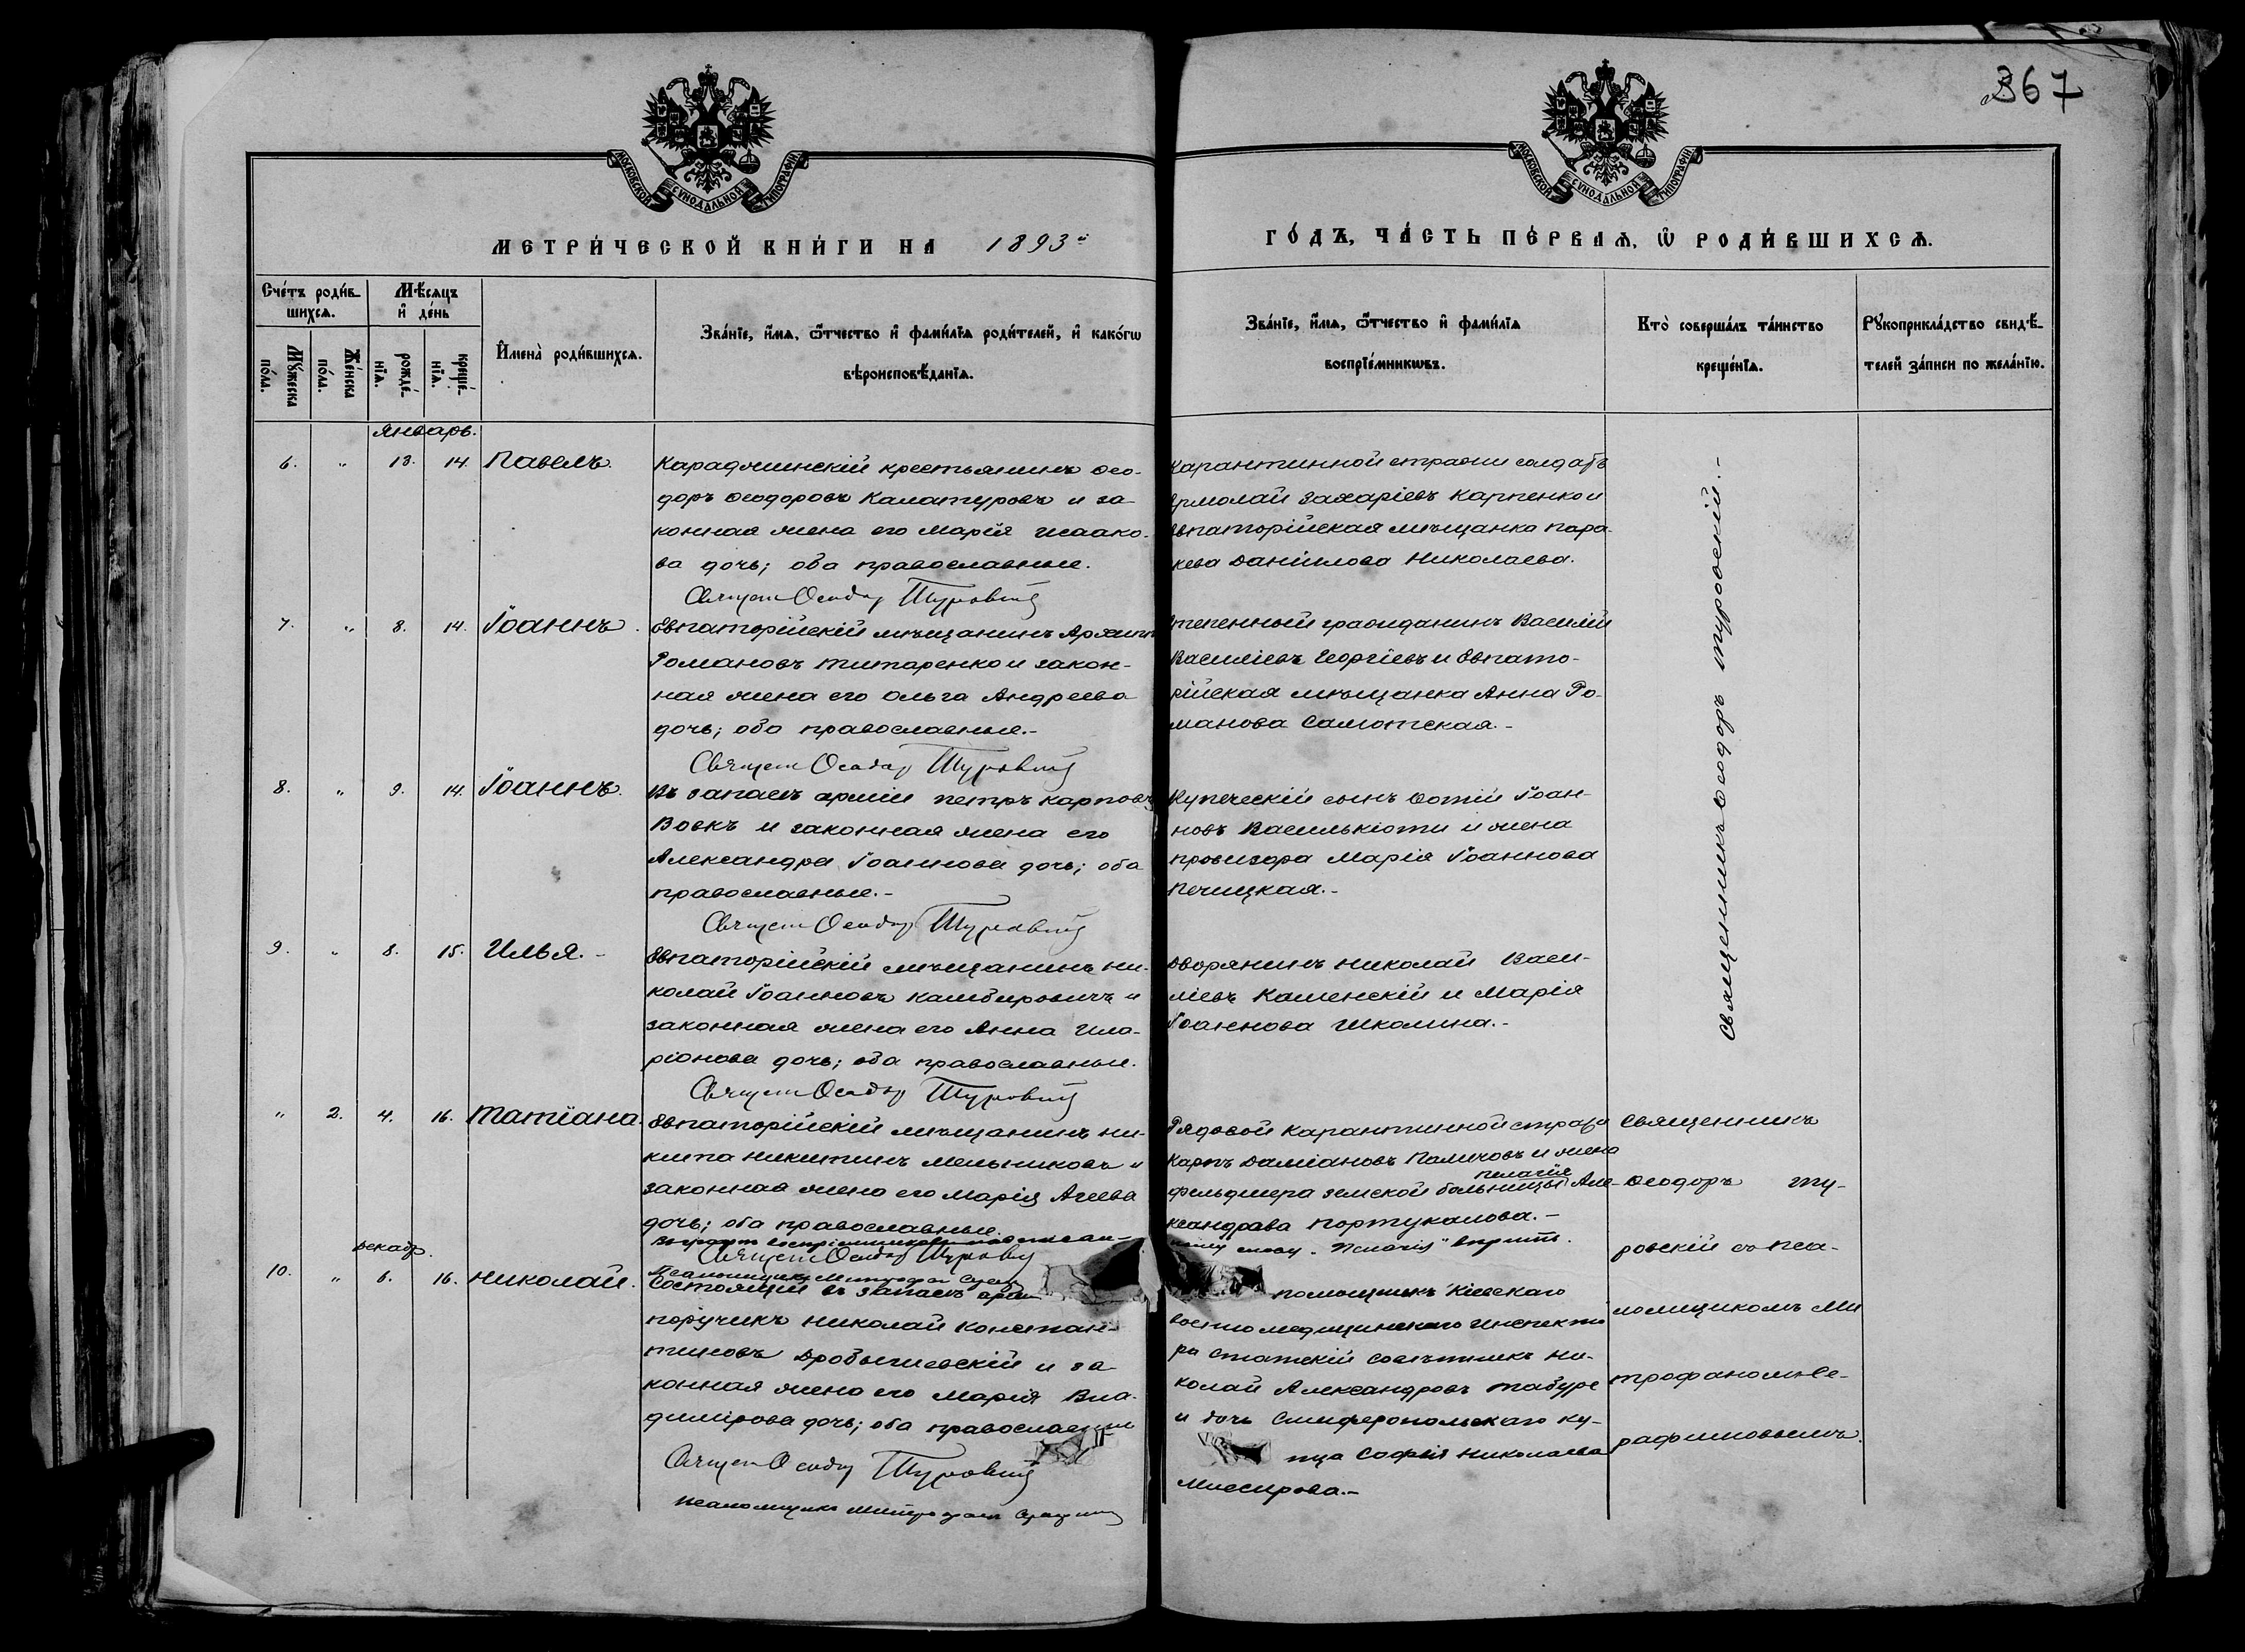 367
МОСКОВСКОЙ СУНОДАЛЬНОЙ ТИПОГРАФІИ
МОСКОВСКОЙ СУНОДАЛЬНОЙ ТИПОГРАФІИ
МЕТРИ́ЧЕСКОЙ КНИ́ГИ НА 1893й
ГО́ДЪ, ЧА́СТЬ ПЕ́РВАѦ, Ѡ РОДИ́ВШИХСѦ.
Сче́тъ роди́в-
шихсѧ.
Мѣ́сѧцъ
и҆ де́нь
Мꙋ́жеска
по́ла.
Же́нска
по́ла.
рожде́-
нїѧ.
креще́-
нїѧ.
И҆мена̀ роди́вшихсѧ.
Зва́нїе, и҆́мѧ, ѻ҆́тчество и҆ фами́лїѧ роди́телей, и҆ како́гѡ
вѣроисповѣ́данїѧ.
Зва́нїе, и҆́мѧ, ѻ҆́тчество и҆ фами́лїѧ
воспрїе́мникѡвъ.
Кто̀ соверша́лъ та́инство
креще́нїѧ.
Рꙋкоприкла́дство свидѣ́-
телей за́писи по жела́нїю.
Январь.
6. " 13. 14. Павелъ.
Караджинскій крестьянинъ Ѳео-
доръ Ѳеодоровъ Калатуровъ и за-
конная жена его Марія Исаако-
ва дочь; оба православные.
Священ Ѳеодор Туровскій
Карантинной стражи солдатъ
Ермолай Захаріевъ Карпенко и
Евпаторійская мѣщанка Пара-
кева Даніилова Николаева.
7. " 8. 14. Іоаннъ.
Евпаторійскій мѣщанинъ Архипъ
Романовъ Титаренко и закон-
ная жена его Ольга Андреева
дочь; оба православные.-
Священ Ѳеодор Туровскій
Степенный гражданинъ Василій
Василіевъ Георгіевъ и Евпато-
рійская мѣщанка Анна Ро-
манова Самотская.-
8. " 9. 14. Іоаннъ.
Въ запасѣ арміи Петръ Карповъ
Вовкъ и законная жена его
Александра Іоаннова дочь; оба
православные.-
Священ Ѳеодор Туровскій
Купеческій сынъ Фотій Іоан-
новъ Василькіоти и жена
провизора Марія Іоаннова
Печицкая.-
9. " 8. 15. Илья.-
Евпаторійскій мѣщанинъ Ни-
колай Іоанновъ Камбуровичъ и
законная жена его Анна Ила-
ріонова дочь; оба православные.
Священ Ѳеодор Туровскій
Дворянинъ Николай Васи-
ліевъ Каменскій и Марія
Іоаннова Школина.-
Священникъ Ѳеодоръ Туровскій.-
" 2. 4. 16. Татіана.
Евпаторійскій мѣщанинъ Ни-
кита Никитинъ Мельниковъ и
законная жена его Марія Агеева
дочь; оба православные.
Священ Ѳеодор Туровскій
Рядовой карантинной стражи
Карпъ Даміановъ Поличовъ и жена
Пелагія
фельдшера земской больницы Але-
ксандрова Портукалова.-
Священникъ
Ѳеодоръ Ту-
ровскій съ Пса-
ломщикомъ Ми
трофаномъ Се-
рафимовымъ.
Декабр.
10. " 6. 16. Николай.
Псаломщикъ Митрофан
Состоящій въ запасѣ арміи
поручикъ Николай Констан-
тиновъ Дробышевскій и за-
конная жена его Марія Вла-
димірова дочь; оба православные
Священ Ѳеодор Туровскій
Псаломщикъ Митрофан
помощникъ Кіевскаго
военно медицинскаго инспекто
ра Статскій Совѣтникъ Ни-
колай Александровъ Табуре
и дочь Симферопольскаго ку-
пца Софія Николаева
Миссирова.-